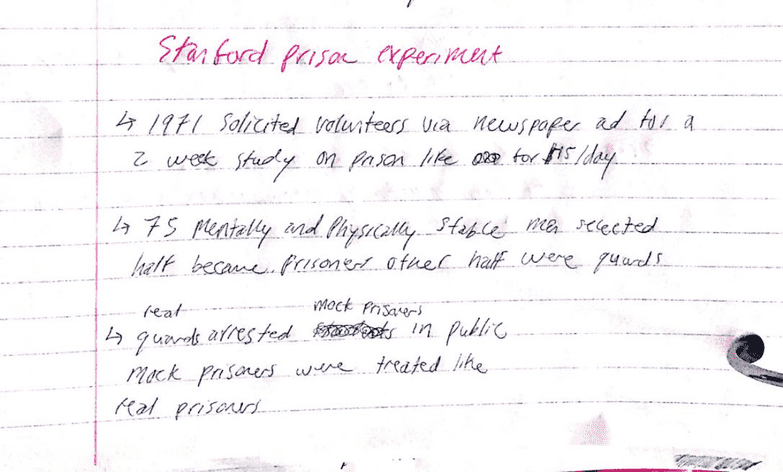 Stanford prison experiment
↳ 1971 solicited volunteers via newspaper ad for a
2 week study on prison life for $15/day
↳ 75 mentally and physically stable men selected
half became prisoners other half were guards
real mock prisoners
↳ guards arrested in public
mock prisoners were treated like
real prisoners